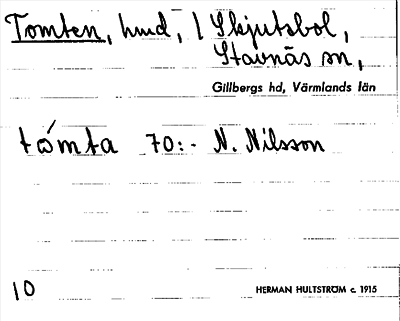 Tomten, hmd, l Skjutsbol,
Stavnäs sn,
Gillbergs hd, Värmlands län
tómta 70:- N. Nilsson
10
HERMAN HULTSTRÖM c. 1915